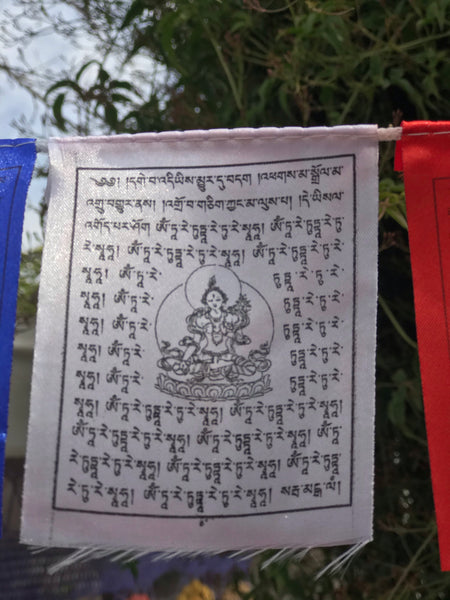 ༄༅། །དགེ་བ་འདི་ཡིས་མྱུར་དུ་བདག །འཕགས་མ་སྒྲོལ་མ་
འགྲུབ་གྱུར་ནས། །འགྲོ་བ་གཅིག་ཀྱང་མ་ལུས་པ། །དེ་ཡིས་ལ་
འགོད་པར་ཤོག ཨོཾ་ཏཱ་རེ་ཏུཏྟཱ་རེ་ཏུ་རེ་སྭཱཧཱ། ཨོཾ་ཏཱ་རེ་ཏུཏྟཱ་རེ་ཏུ་
རེ་སྭཱཧཱ། ཨོཾ་ཏཱ་རེ་ཏུཏྟཱ་རེ་ཏུ་རེ་སྭཱཧཱ། ཨོཾ་ཏཱ་རེ་ཏུཏྟཱ་རེ་ཏུ་རེ་
སྭཱཧཱ། ཨོཾ་ཏཱ་རེ་ ཏུཏྟཱ་རེ་ཏུ་རེ་
སྭཱཧཱ། ཨོཾ་ཏཱ་རེ་ ཏུཏྟཱ་རེ་ཏུ་རེ་
སྭཱཧཱ། ཨོཾ་ཏཱ་རེ་ ཏུཏྟཱ་རེ་ཏུ་རེ་
སྭཱཧཱ། ཨོཾ་ཏཱ་རེ་ ཏུཏྟཱ་རེ་ཏུ་རེ་
སྭཱཧཱ། ཨོཾ་ཏཱ་རེ་ ཏུཏྟཱ་རེ་ཏུ་རེ་
སྭཱཧཱ། ཨོཾ་ཏཱ་རེ་ཏུཏྟཱ་རེ་ཏུ་རེ་སྭཱཧཱ། ཨོཾ་ཏཱ་རེ་ཏུཏྟཱ་རེ་ཏུ་རེ་སྭཱཧཱ།
ཨོཾ་ཏཱ་རེ་ཏུཏྟཱ་རེ་ཏུ་རེ་སྭཱཧཱ། ཨོཾ་ཏཱ་རེ་ཏུཏྟཱ་རེ་ཏུ་རེ་སྭཱཧཱ། ཨོཾ་ཏཱ་
རེ་ཏུཏྟཱ་རེ་ཏུ་རེ་སྭཱཧཱ། ཨོཾ་ཏཱ་རེ་ཏུཏྟཱ་རེ་ཏུ་རེ་སྭཱཧཱ། ཨོཾ་ཏཱ་རེ་ཏུཏྟཱ་
རེ་ཏུ་རེ་སྭཱཧཱ། ཨོཾ་ཏཱ་རེ་ཏུཏྟཱ་རེ་ཏུ་རེ་སྭཱཧཱ། སརྦ་མངྒ་ལཾ།